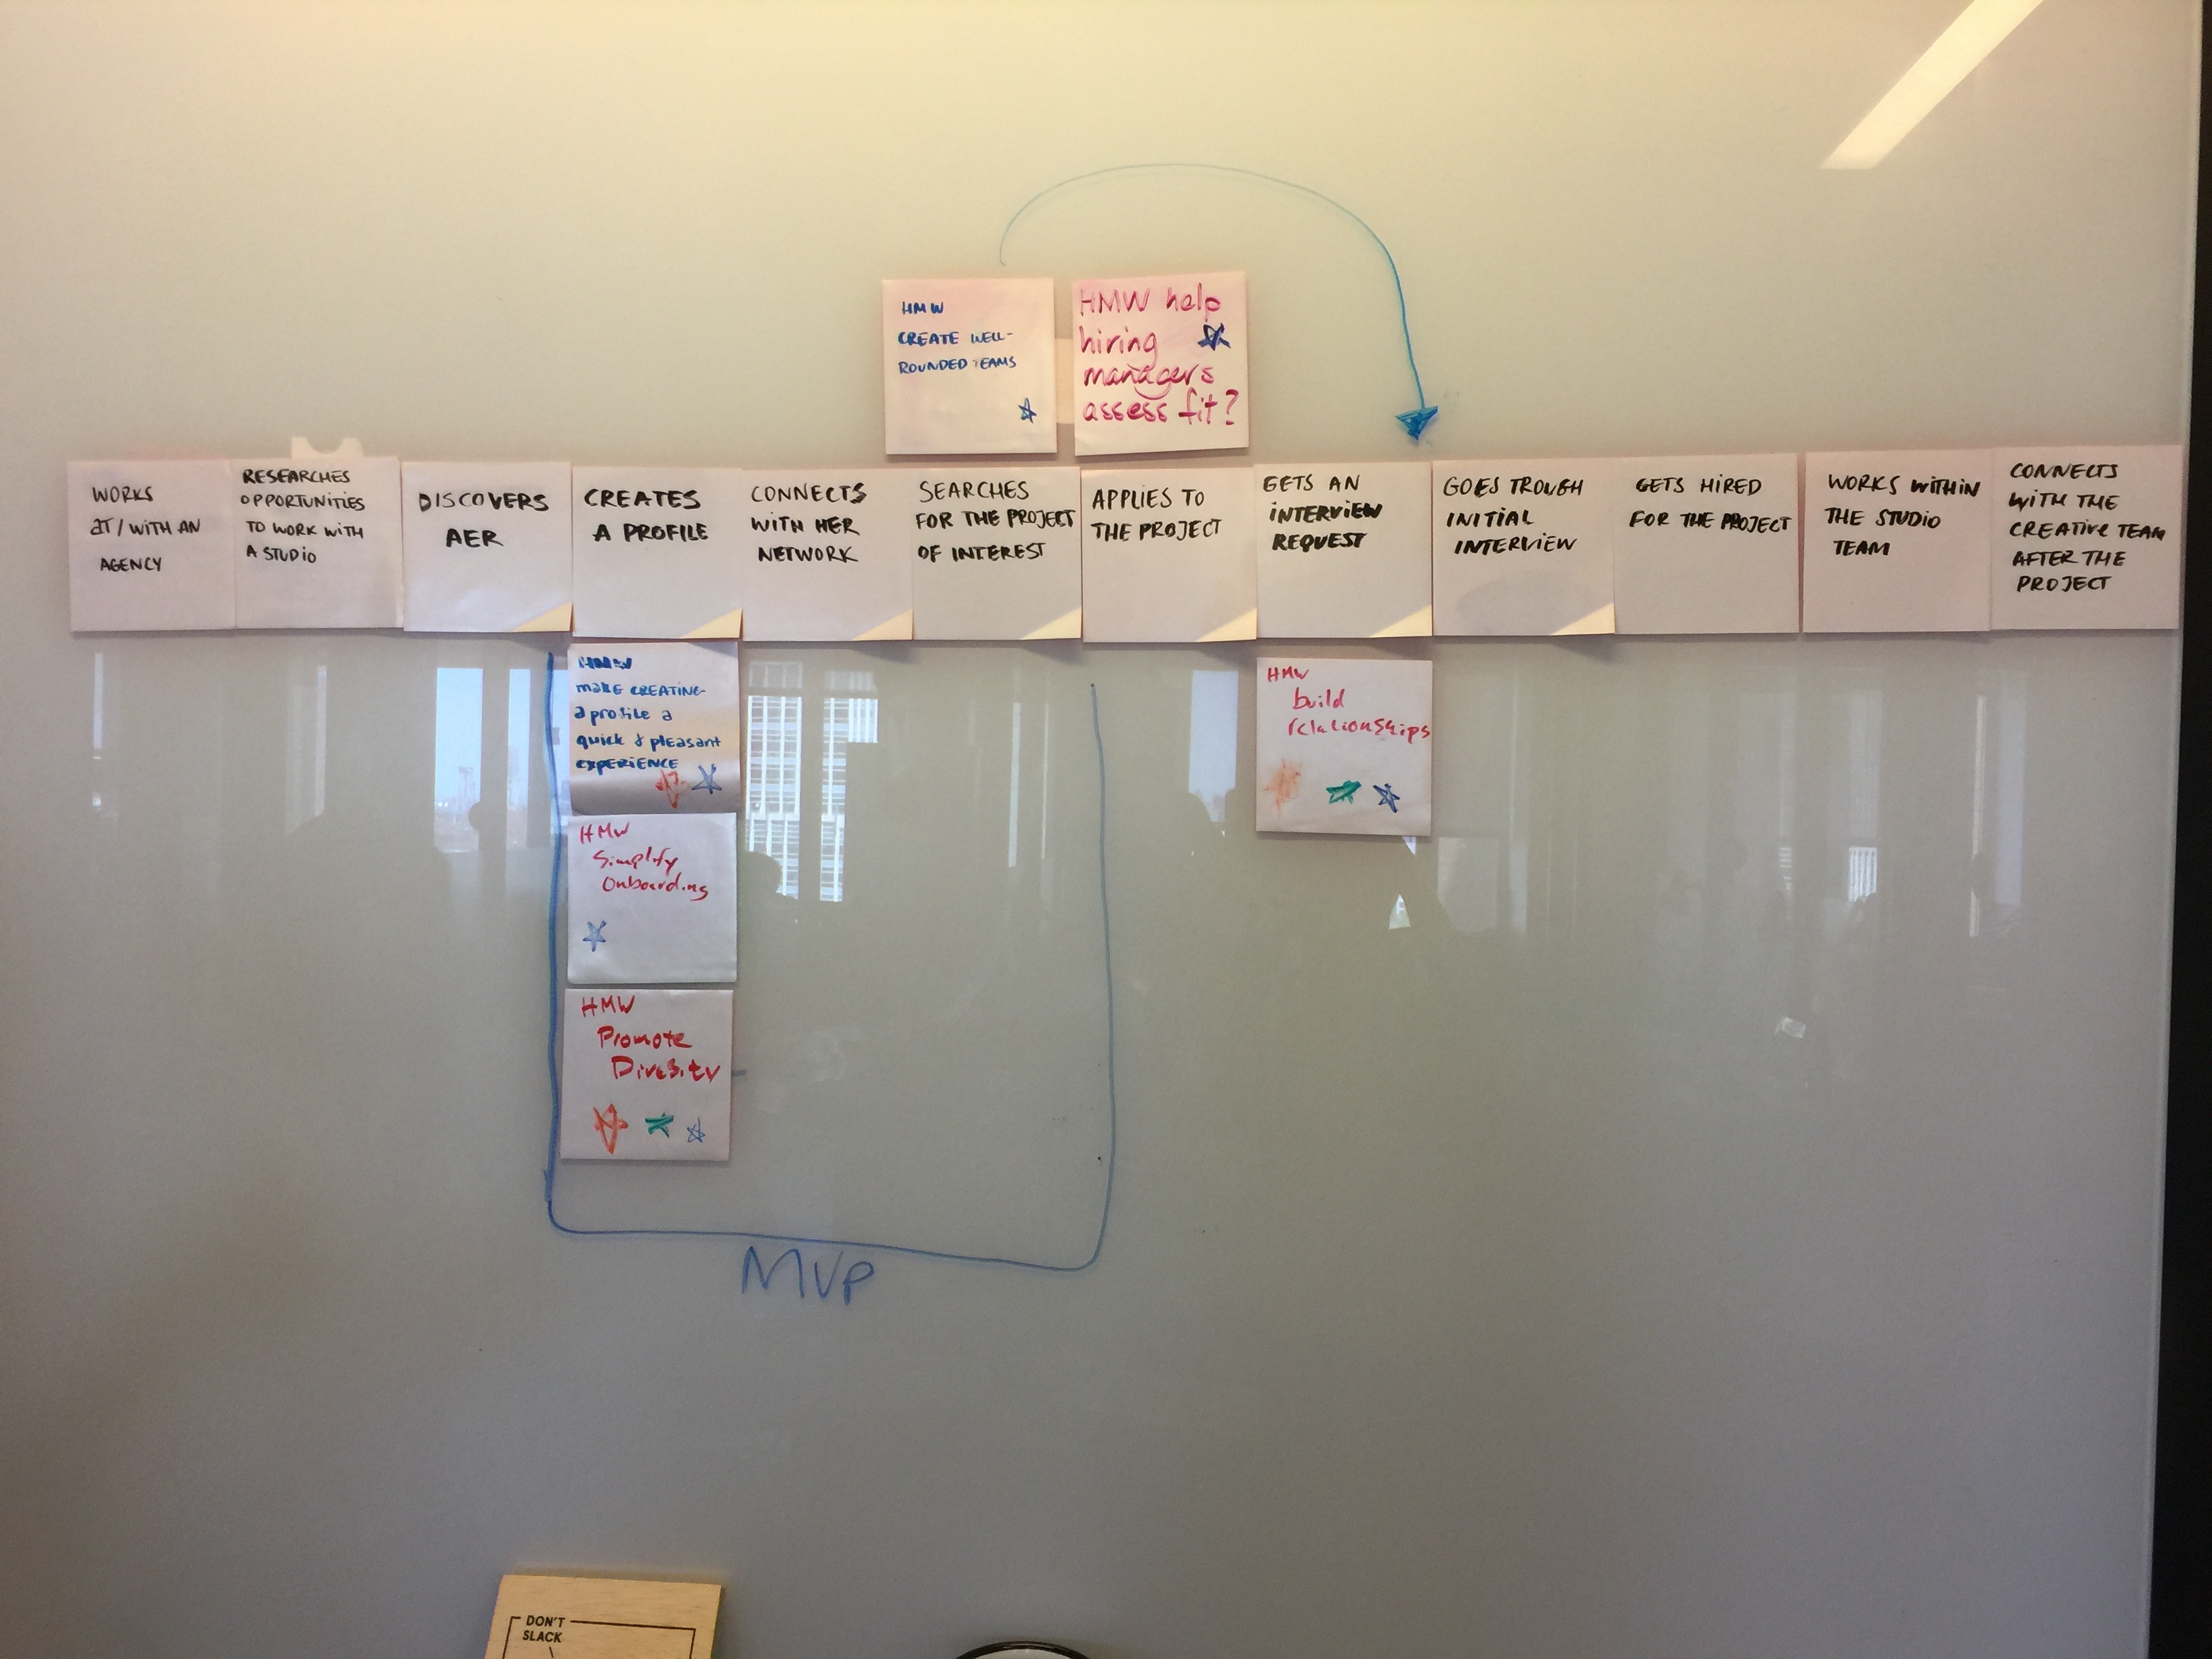 HMW
CREATE WELL-
ROUNDED TEAMS
HMW help
hiring
managers
assess fit?
WORKS
AT / WITH AN
AGENCY
RESEARCHES
OPPORTUNITIES
TO WORK WITH
A STUDIO
DISCOVERS
AER
CREATES
A PROFILE
CONNECTS
WITH HER
NETWORK
SEARCHES
FOR THE PROJECT
OF INTEREST
APPLIES TO
THE PROJECT
GETS AN
INTERVIEW
REQUEST
GOES TROUGH
INITIAL
INTERVIEW
GETS HIRED
FOR THE PROJECT
WORKS WITHIN
THE STUDIO
TEAM
CONNECTS
WITH THE
CREATIVE TEAM
AFTER THE
PROJECT
HMW
MAKE CREATING
a profile a
quick & pleasant
EXPERIENCE
HMW
Simplify
Onboarding
HMW
Promote
Diversity
HMW
build
relationships
MVP
DON'T
SLACK